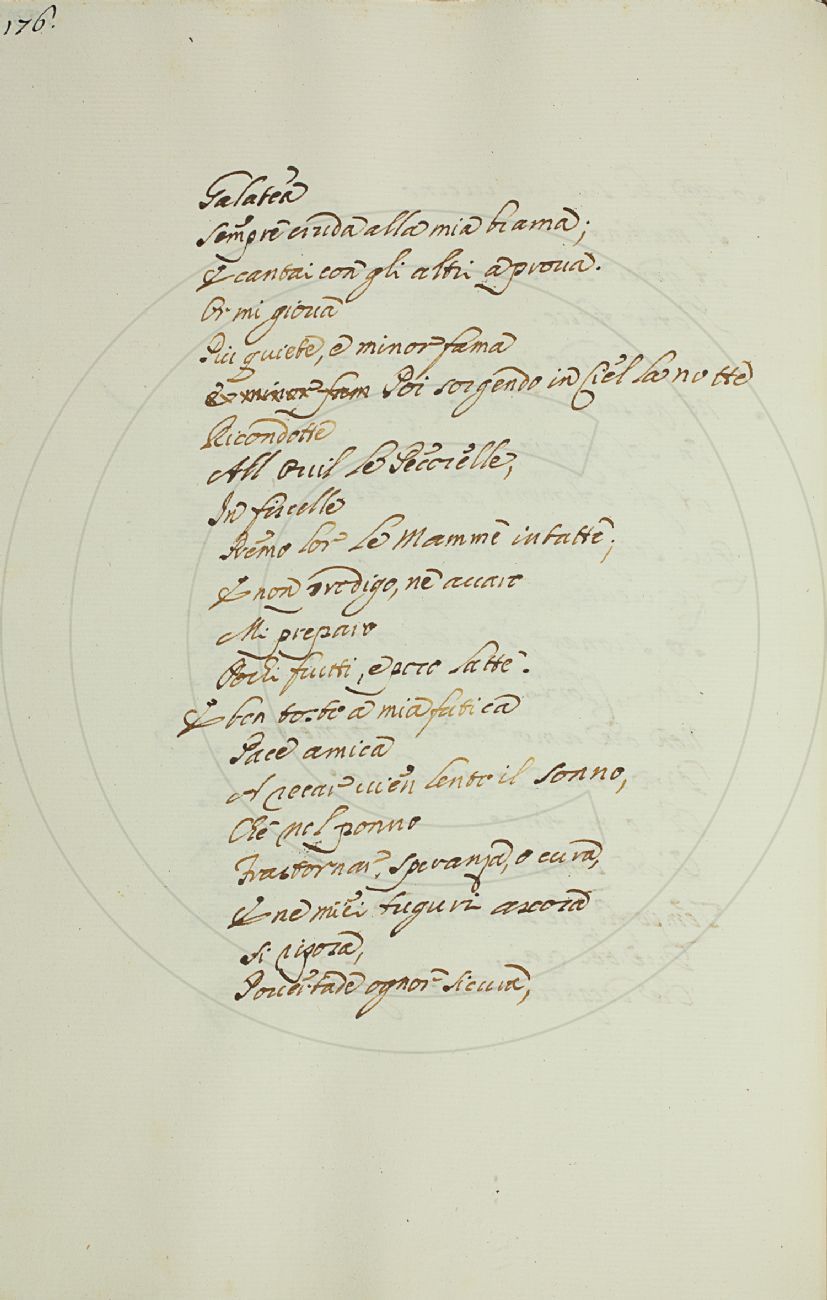 176.
Galatea
Sempre cruda alla mia brama;
E cantai con gli altri a prova.
Or mi giova
Più quiete, e minor fama
E minor fam Poi sorgendo in Ciel la notte
Ricondotte
All Ovil le Pecorelle,
In fiscelle
Premo lor le Mamme intatte;
E non prodigo, ne avaro
Mi preparo
Pochi frutti, e poco latte.
E ben tosto a mia fatica
Pace amica
A recar vien lento il sonno,
Che nol ponno
Frastornar, speranza, o cura,
E ne miei tuguri ancora
Si ripora,
Povertade ognor sicura,